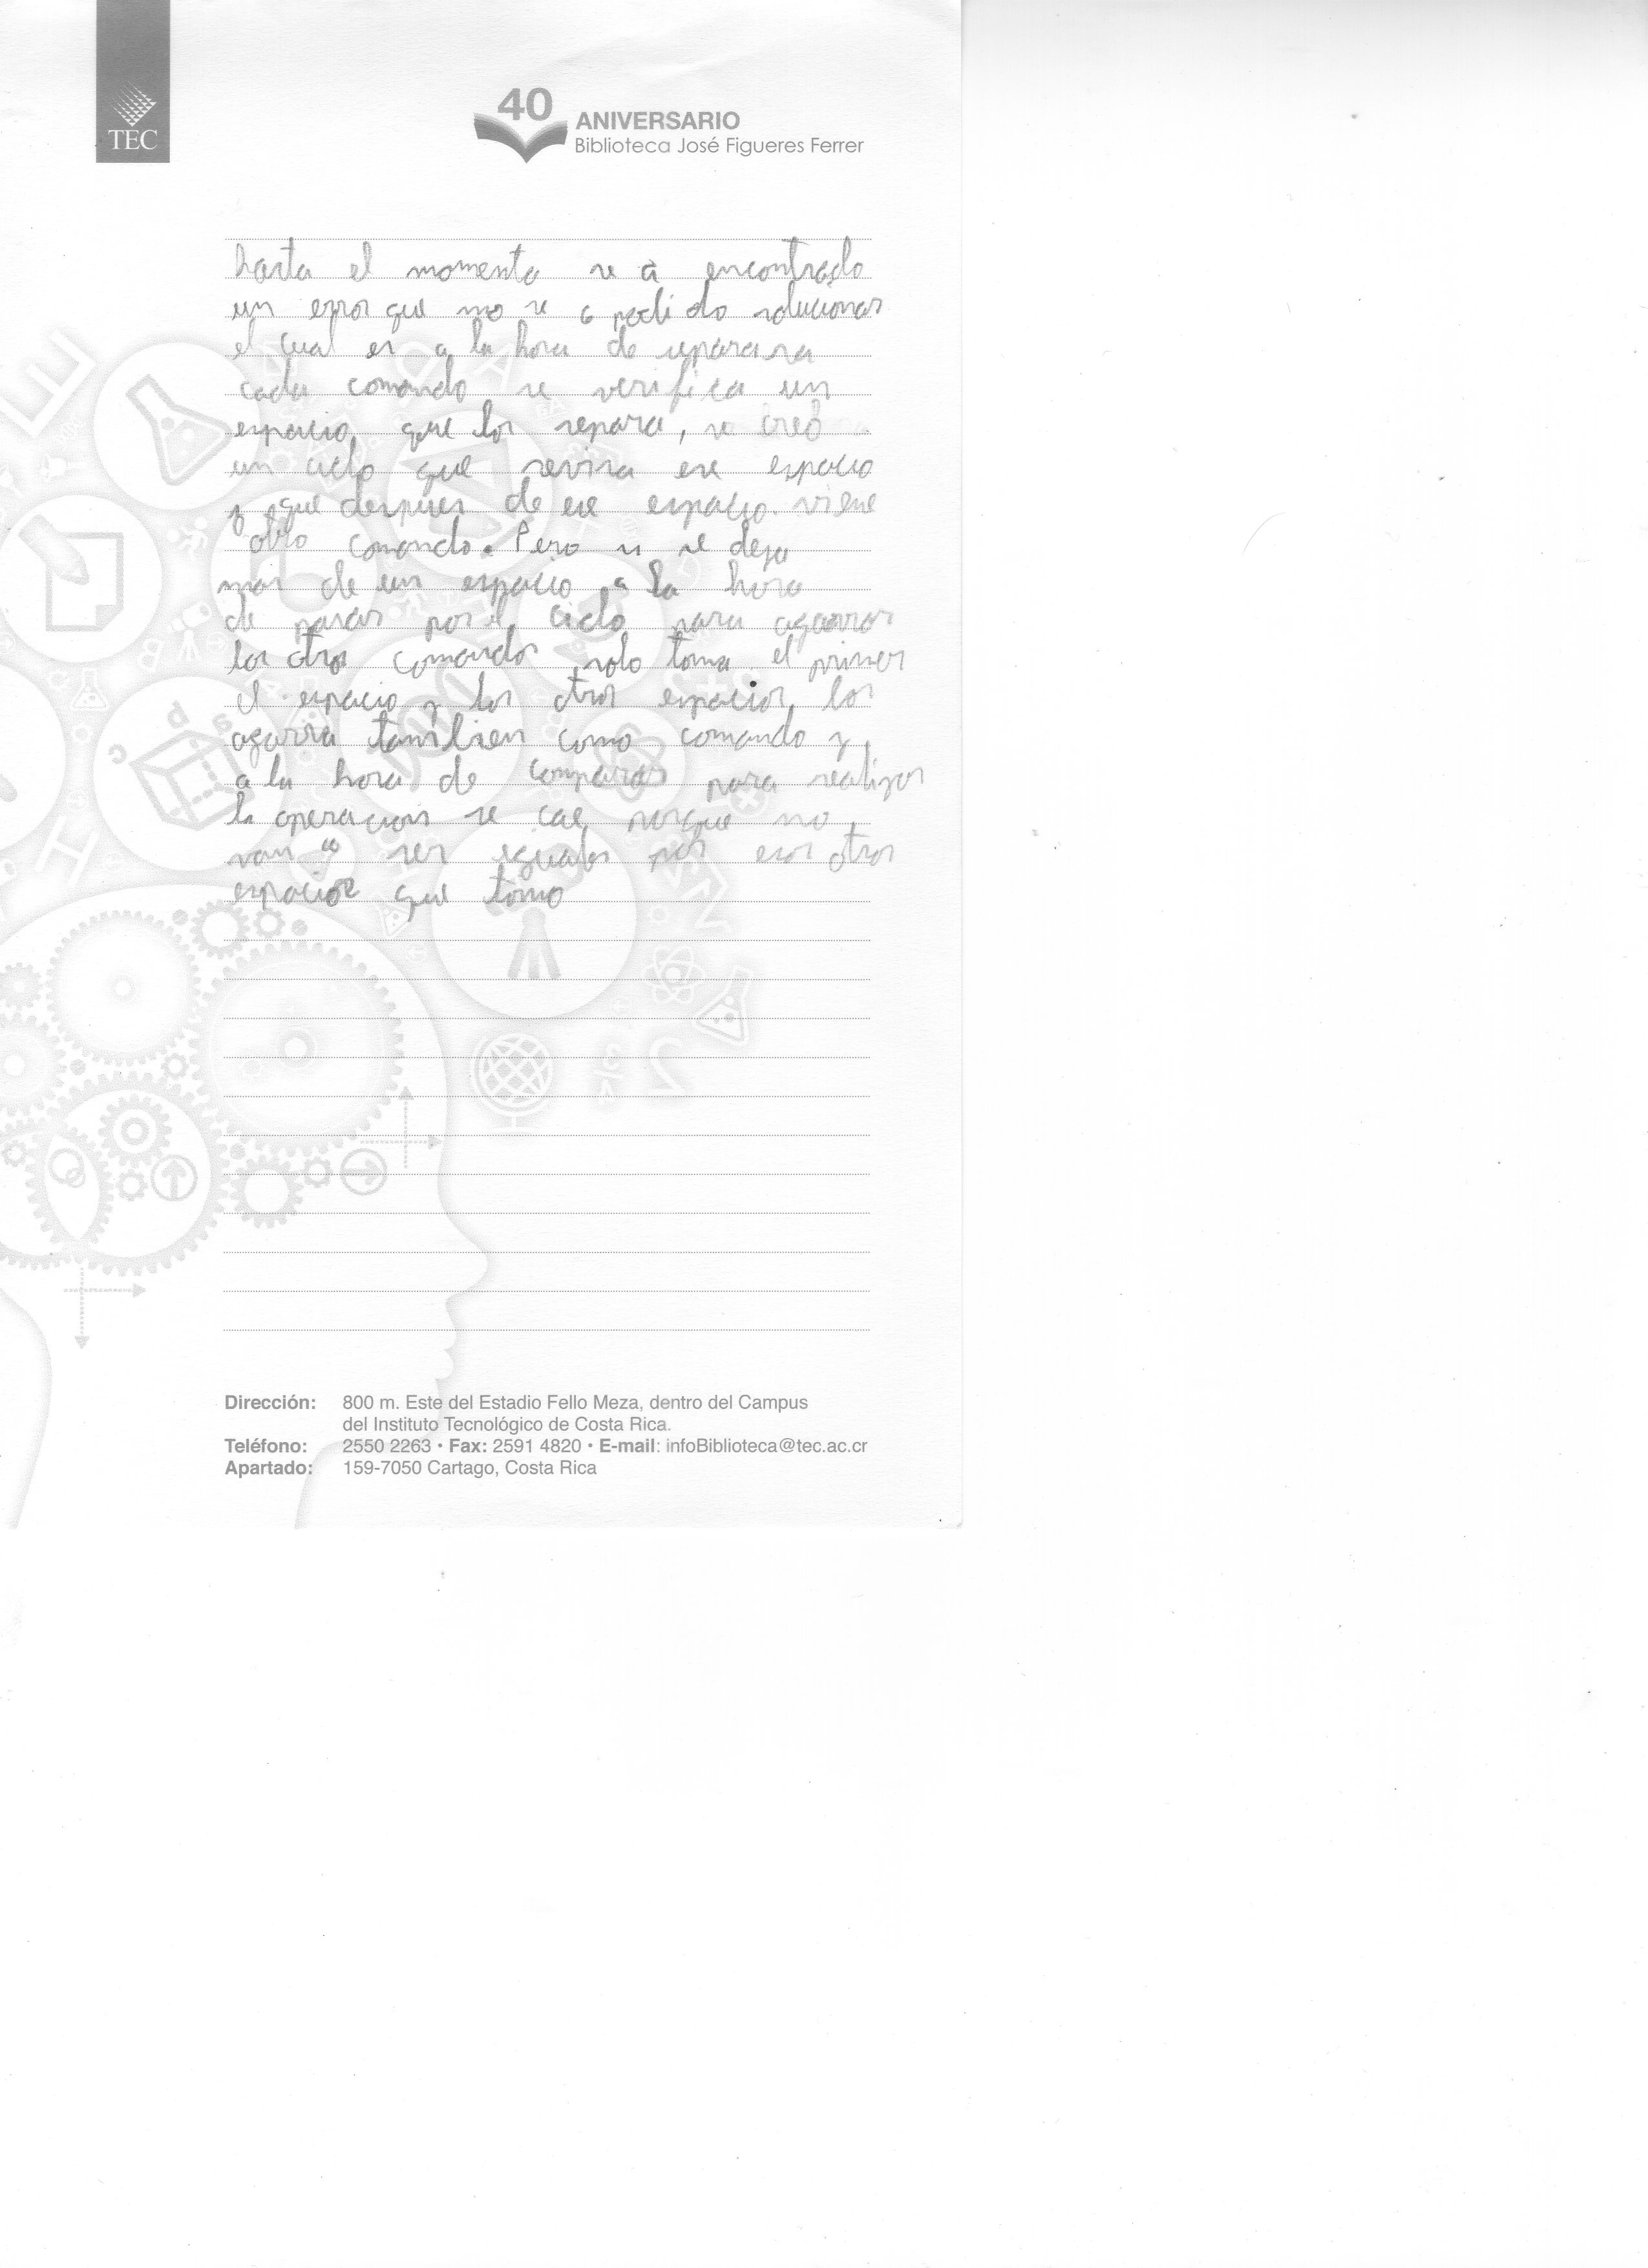 TEC
40
ANIVERSARIO
Biblioteca José Figueres Ferrer
hasta el momento se a encontrado
un error que no se a podido solucionar
el cual es a la hora de separarsa
cada comando se verifica un
espacio que los separa, se creo
un ciclo que revisa ese espacio
y que despues de ese espacio viene
otro comando. Pero si se deja
mas de un espacio a la hora
de pasar por el ciclo para agarrar
los otros comandos solo toma el primer
el espacio y los otros espacios los
agarra tambien como comando y
a la hora de comparar para realizar
la operacion se cae porque no
van a ser iguales por esos otros
espacios que tomo
Dirección: 800 m. Este del Estadio Fello Meza, dentro del Campus
del Instituto Tecnológico de Costa Rica.
Teléfono: 2550 2263 • Fax: 2591 4820 • E-mail: infoBiblioteca@tec.ac.cr
Apartado: 159-7050 Cartago, Costa Rica